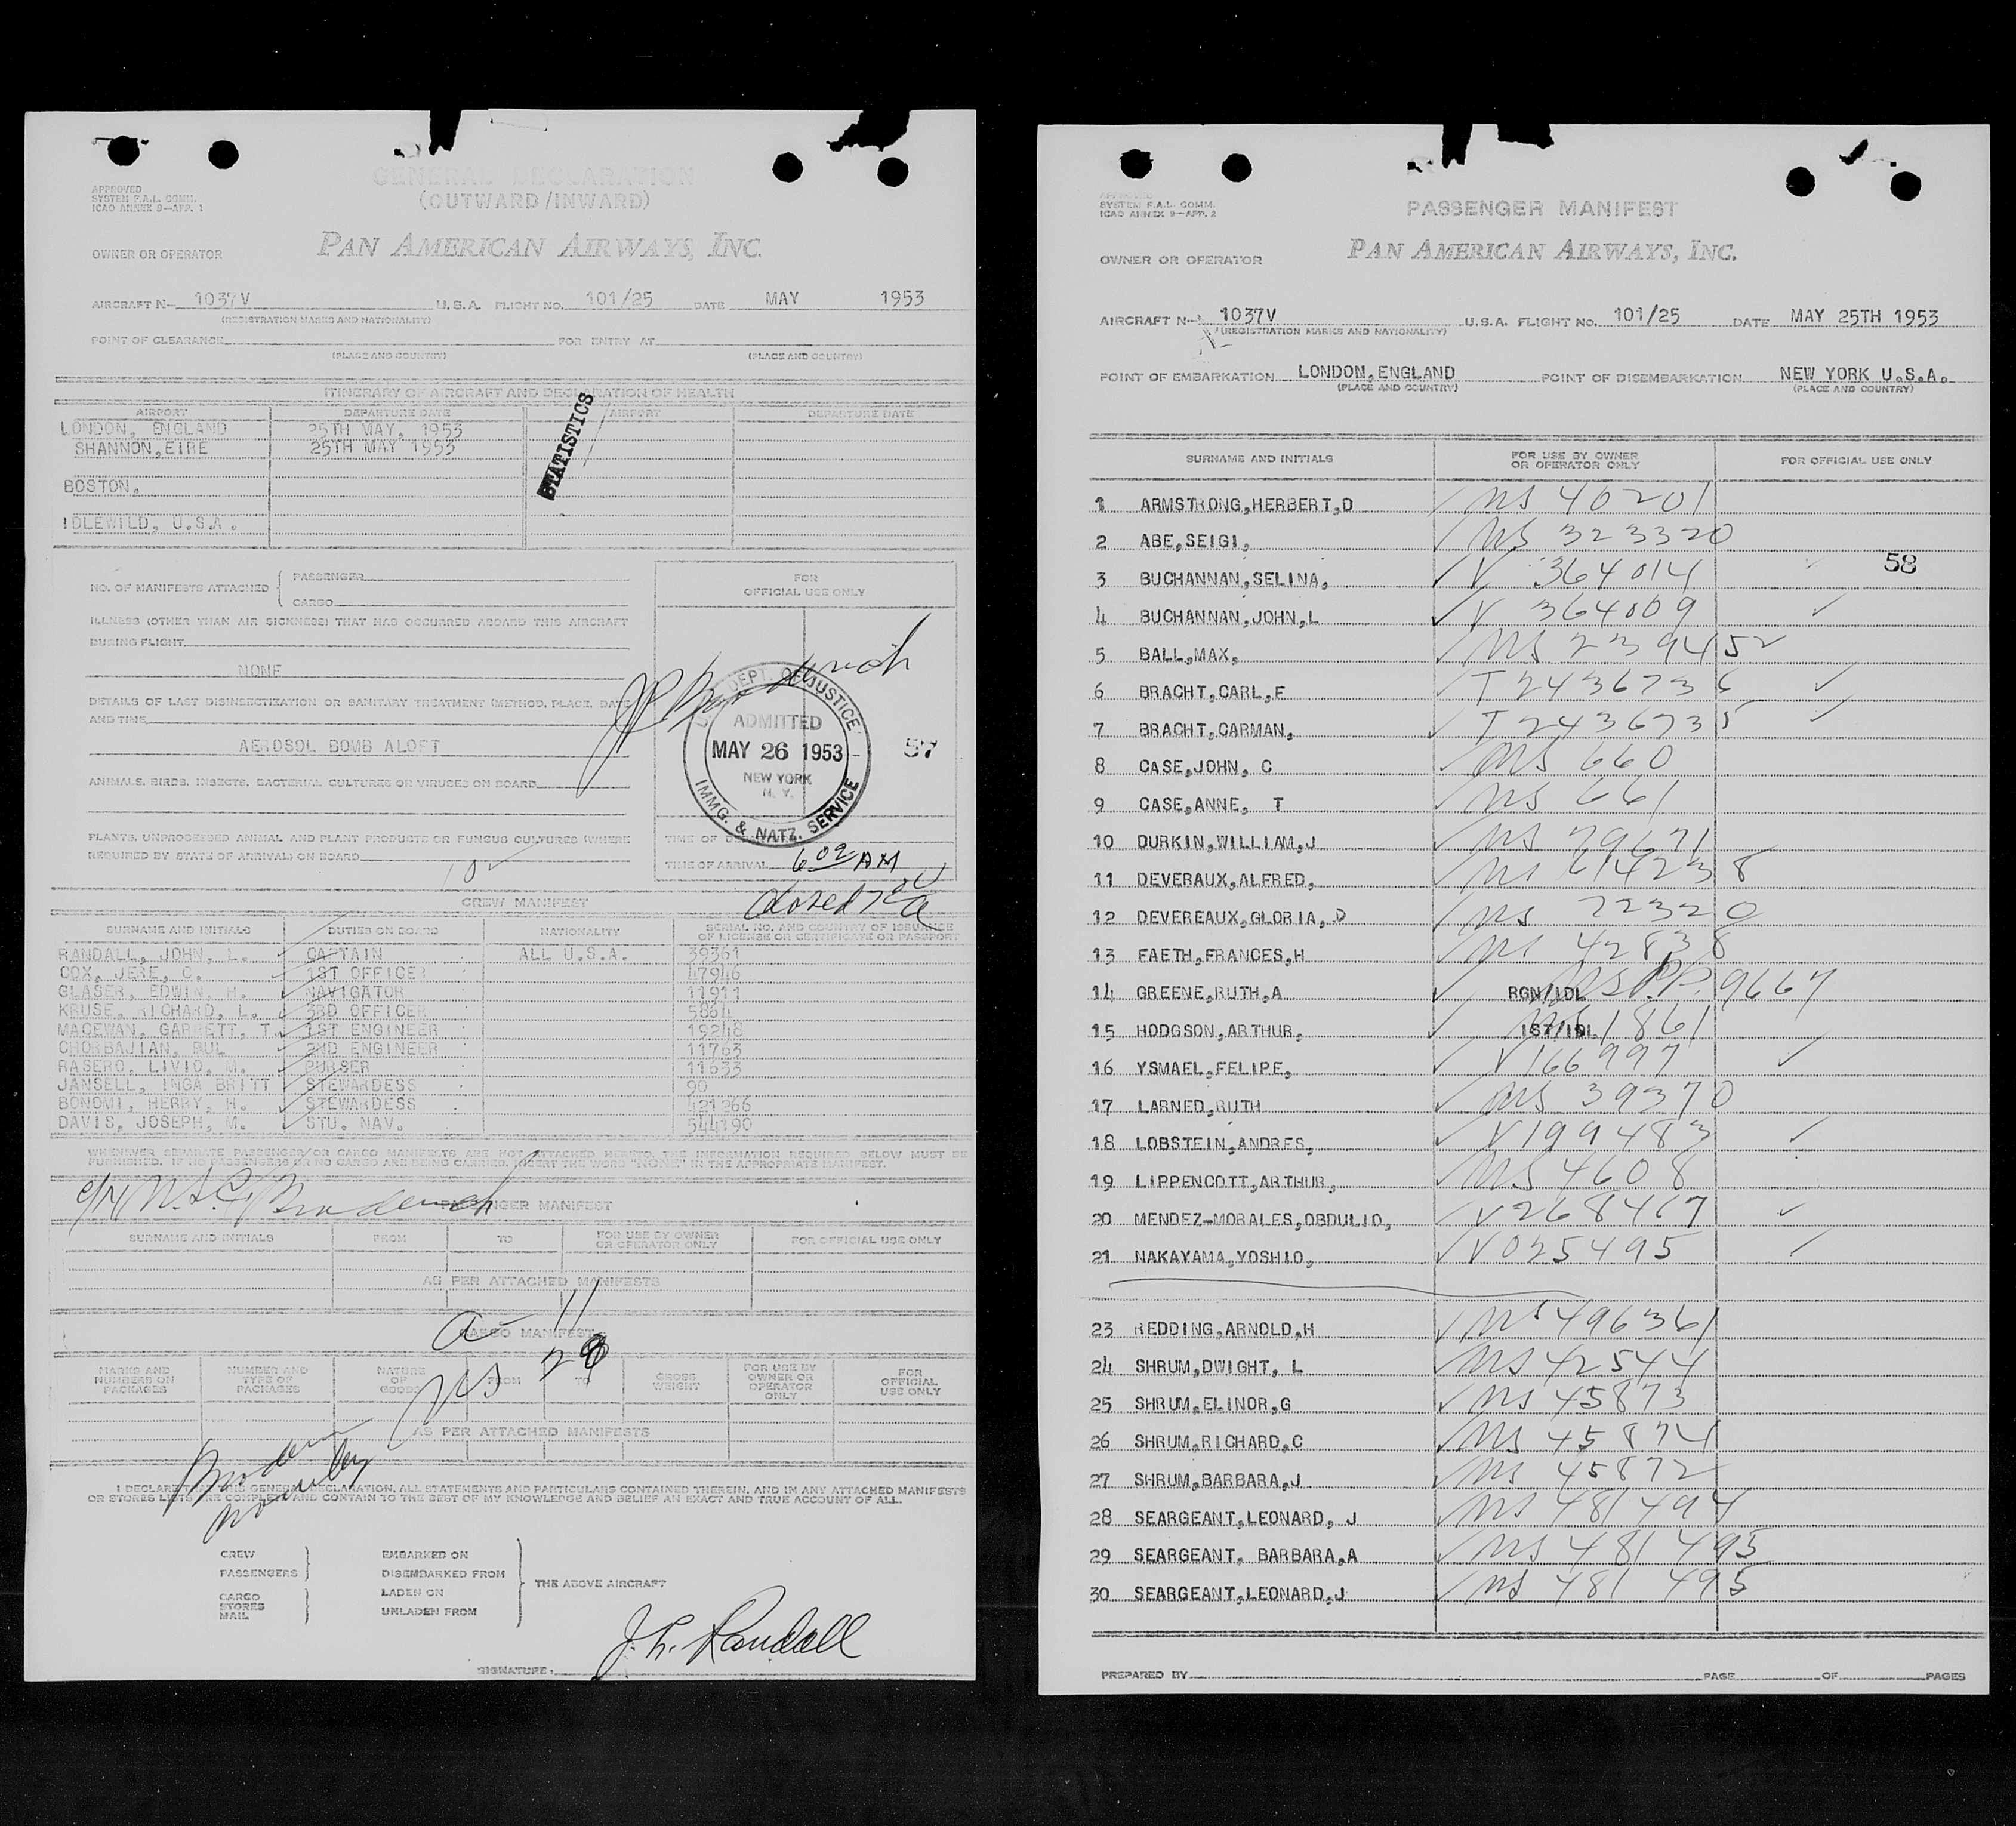 GENERAL DECLARATION
(OUTWARD/INWARD)
APPROVED
SYSTEM F.A.L. COMM.
ICAO ANNEX 9—APP. 1
OWNER OR OPERATOR PAN AMERICAN AIRWAYS, INC.
AIRCRAFT N- 1037V U.S.A. FLIGHT NO. 101/25 DATE MAY 1953
(REGISTRATION MARKS AND NATIONALITY)
POINT OF CLEARANCE FOR ENTRY AT
(PLACE AND COUNTRY) (PLACE AND COUNTRY)
ITINERARY OF AIRCRAFT AND DECLARATION OF HEALTH
AIRPORT DEPARTURE DATE AIRPORT DEPARTURE DATE
LONDON, ENGLAND 25TH MAY, 1953
SHANNON,EIRE 25TH MAY 1953
STATISTICS
BOSTON.
IDLEWILD, U.S.A.
NO. OF MANIFESTS ATTACHED { PASSENGER
CARGO
FOR
OFFICIAL USE ONLY
ILLNESS (OTHER THAN AIR SICKNESS) THAT HAS OCCURRED ABOARD THIS AIRCRAFT
DURING FLIGHT
NONE
DETAILS OF LAST DISINSECTIZATION OR SANITARY TREATMENT (METHOD, PLACE, DATE
AND TIME
AEROSOL BOMB ALOFT
ANIMALS, BIRDS, INSECTS, BACTERIAL CULTURES OR VIRUSES ON BOARD
PLANTS, UNPROCESSED ANIMAL AND PLANT PRODUCTS OR FUNGUS CULTURES (WHERE
REQUIRED BY STATE OF ARRIVAL) ON BOARD
DEPT. OF JUSTICE
ADMITTED
MAY 26 1953
NEW YORK
N. Y.
IMMG. & NATZ. SERVICE
57
TIME OF
TIME OF ARRIVAL 6 02 AM
Closed
CREW MANIFEST
SURNAME AND INITIALS DUTIES ON BOARD NATIONALITY SERIAL NO. AND COUNTRY OF ISSUANCE
OF LICENSE OR CERTIFICATE OR PASSPORT
RANDALL, JOHN, L. CAPTAIN ALL U.S.A. 39361
COX, JERE, C. 1ST OFFICER 47946
GLASER, EDWIN, H. NAVIGATOR 11911
KRUSE, RICHARD, L. 3RD OFFICER 5864
MACEWAN, GARRETT, T. 1ST ENGINEER 19248
CHORBAJIAN, BUL 2ND ENGINEER 11763
RASERO, LIVIO, M. PURSER 11633
JANSELL, INGA BRITT STEWARDESS 90
BONOMI, HERRY, H. STEWARDESS 421266
DAVIS, JOSEPH, M. STU. NAV. 544190
WHENEVER SEPARATE PASSENGER/OR CARGO MANIFESTS ARE NOT ATTACHED HERETO, THE INFORMATION REQUIRED BELOW MUST BE
FURNISHED. IF NO PASSENGERS OR NO CARGO ARE BEING CARRIED, INSERT THE WORD "NONE" IN THE APPROPRIATE MANIFEST.
PASSENGER MANIFEST
SURNAME AND INITIALS FROM TO FOR USE BY OWNER
OR OPERATOR ONLY FOR OFFICIAL USE ONLY
AS PER ATTACHED MANIFESTS
a - 11
CARGO MANIFEST
MARKS AND
NUMBERS ON
PACKAGES NUMBER AND
TYPE OF
PACKAGES NATURE
OF
GOODS FROM TO GROSS
WEIGHT FOR USE BY
OWNER OR
OPERATOR
ONLY FOR
OFFICIAL
USE ONLY
AS PER ATTACHED MANIFESTS
I DECLARE THAT THIS GENERAL DECLARATION, ALL STATEMENTS AND PARTICULARS CONTAINED THEREIN, AND IN ANY ATTACHED MANIFESTS
OR STORES LISTS ARE COMPLETE AND CONTAIN TO THE BEST OF MY KNOWLEDGE AND BELIEF AN EXACT AND TRUE ACCOUNT OF ALL.
CREW EMBARKED ON
PASSENGERS DISEMBARKED FROM
THE ABOVE AIRCRAFT
CARGO LADEN ON
STORES
MAIL UNLADEN FROM
SIGNATURE. J. L. Randall
APPROVED
SYSTEM F.A.L. COMM.
ICAO ANNEX 9—APP. 2
PASSENGER MANIFEST
OWNER OR OPERATOR PAN AMERICAN AIRWAYS, INC.
AIRCRAFT N- 1037V U.S.A. FLIGHT NO. 101/25 DATE MAY 25TH 1953
(REGISTRATION MARKS AND NATIONALITY)
POINT OF EMBARKATION LONDON,ENGLAND POINT OF DISEMBARKATION NEW YORK U.S.A.
(PLACE AND COUNTRY) (PLACE AND COUNTRY)
SURNAME AND INITIALS FOR USE BY OWNER
OR OPERATOR ONLY FOR OFFICIAL USE ONLY
1 ARMSTRONG,HERBERT,D NS 40201
2 ABE,SEIGI, NS 323320
58
3 BUCHANNAN,SELINA, V 364014
4 BUCHANNAN,JOHN,L V 364009
5 BALL,MAX, NS 239452
6 BRACHT,CARL,F T2436736
7 BRACHT,CARMAN, T2436735
8 CASE,JOHN, C NS 660
9 CASE,ANNE, T NS 661
10 DURKIN,WILLIAM,J NS 79671
11 DEVERAUX,ALFRED, NS 614238
12 DEVEREAUX,GLORIA,D NS 72320
13 FAETH,FRANCES,H NS 42838
14 GREENE,RUTH,A RGN/IDL 9667
15 HODGSON,ARTHUR, 1ST/IDL 1861
16 YSMAEL,FELIPE, V166997
17 LARNED,RUTH NS 39370
18 LOBSTEIN,ANDRES, V199483
19 LIPPENCOTT,ARTHUR, NS 4608
20 MENDEZ-MORALES,OBDULIO, V268467
21 NAKAYAMA,YOSHIO, V025495
23 REDDING,ARNOLD,H NS 496361
24 SHRUM,DWIGHT, L NS 42544
25 SHRUM,ELINOR,G NS 45873
26 SHRUM,RICHARD,C NS 45874
27 SHRUM,BARBARA,J NS 45872
28 SEARGEANT,LEONARD, J NS 481494
29 SEARGEANT, BARBARA,A NS 481495
30 SEARGEANT,LEONARD,J NS 481495
PREPARED BY PAGE OF PAGES